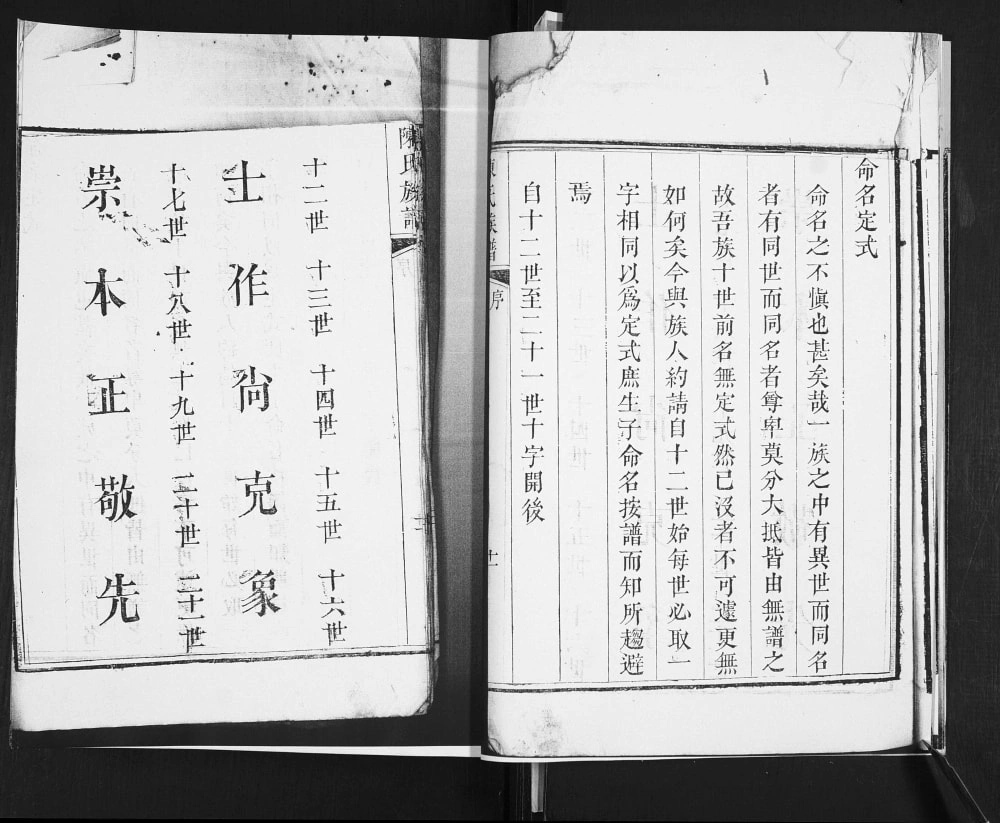 命名定式
命名之不愼也甚矣哉一族之中有異世而同名
者有同世而同名者尊卑莫分大抵皆由無譜之
故吾族十世前名無定式然已沒者不可遽更無
如何矣今與族人約請自十二世始每世必取一
字相同以爲定式庶生子命名按譜而知所趨避
焉
自十二世至二十一世十字開後
陳氏族譜
序
十一
陳氏族譜
序
十二世 十三世 十四世 十五世 十六世
士 作 尙 克 象
十七世 十八世 十九世 二十世 二十一世
崇 本 正 敬 先